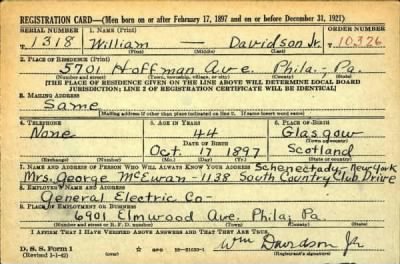 REGISTRATION CARD—(Men born on or after February 17, 1897 and on or before December 31, 1921)
SERIAL NUMBER 1. NAME (Print) ORDER NUMBER
1318 William — Davidson Jr. 10326
2. PLACE OF RESIDENCE (Print)
5701 Hoffman Ave. Phila.; Pa.
(Number and street) (Town, township, village, or city) (County) (State)
[THE PLACE OF RESIDENCE GIVEN ON THE LINE ABOVE WILL DETERMINE LOCAL BOARD
JURISDICTION; LINE 2 OF REGISTRATION CERTIFICATE WILL BE IDENTICAL]
3. MAILING ADDRESS
Same
[Mailing address if other than place indicated on line 2. If same insert word same]
4. TELEPHONE 5. AGE IN YEARS 6. PLACE OF BIRTH
None 44 Glasgow
DATE OF BIRTH
Oct. 17 1897 Scotland
(Exchange) (Number) (Mo.) (Day) (Yr.) (State or country)
7. NAME AND ADDRESS OF PERSON WHO WILL ALWAYS KNOW YOUR ADDRESS Schenectady, New York
Mrs. George McEwan — 1138 South Country Club Drive
8. EMPLOYER'S NAME AND ADDRESS
General Electric Co —
9. PLACE OF EMPLOYMENT OR BUSINESS
6901 Elmwood Ave. Phila; Pa.
(Number and street or R. F. D. number) (Town) (County) (State)
I AFFIRM THAT I HAVE VERIFIED ABOVE ANSWERS AND THAT THEY ARE TRUE.
D. S. S. Form 1
(Revised 1-1-42) Wm Davidson Jr
(Registrant's signature)